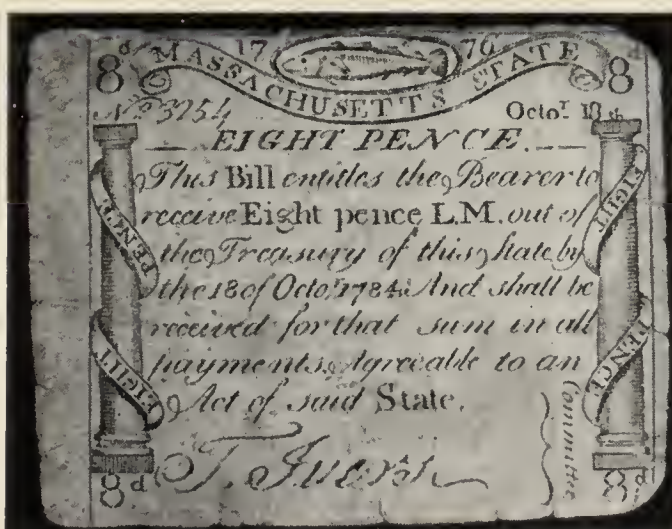 8d 17 76 8d
MASSACHUSETTS STATE
No 3754 Octor. 18th
EIGHT PENCE.
This Bill entitles the Bearer to
receive Eight pence L.M. out of
the Treasury of this State by
the 18 of Octor. 1784. And shall be
received for that sum in all
payments, Agreeable to an
Act of said State.
EIGHT PENCE
EIGHT PENCE
Committee
8d